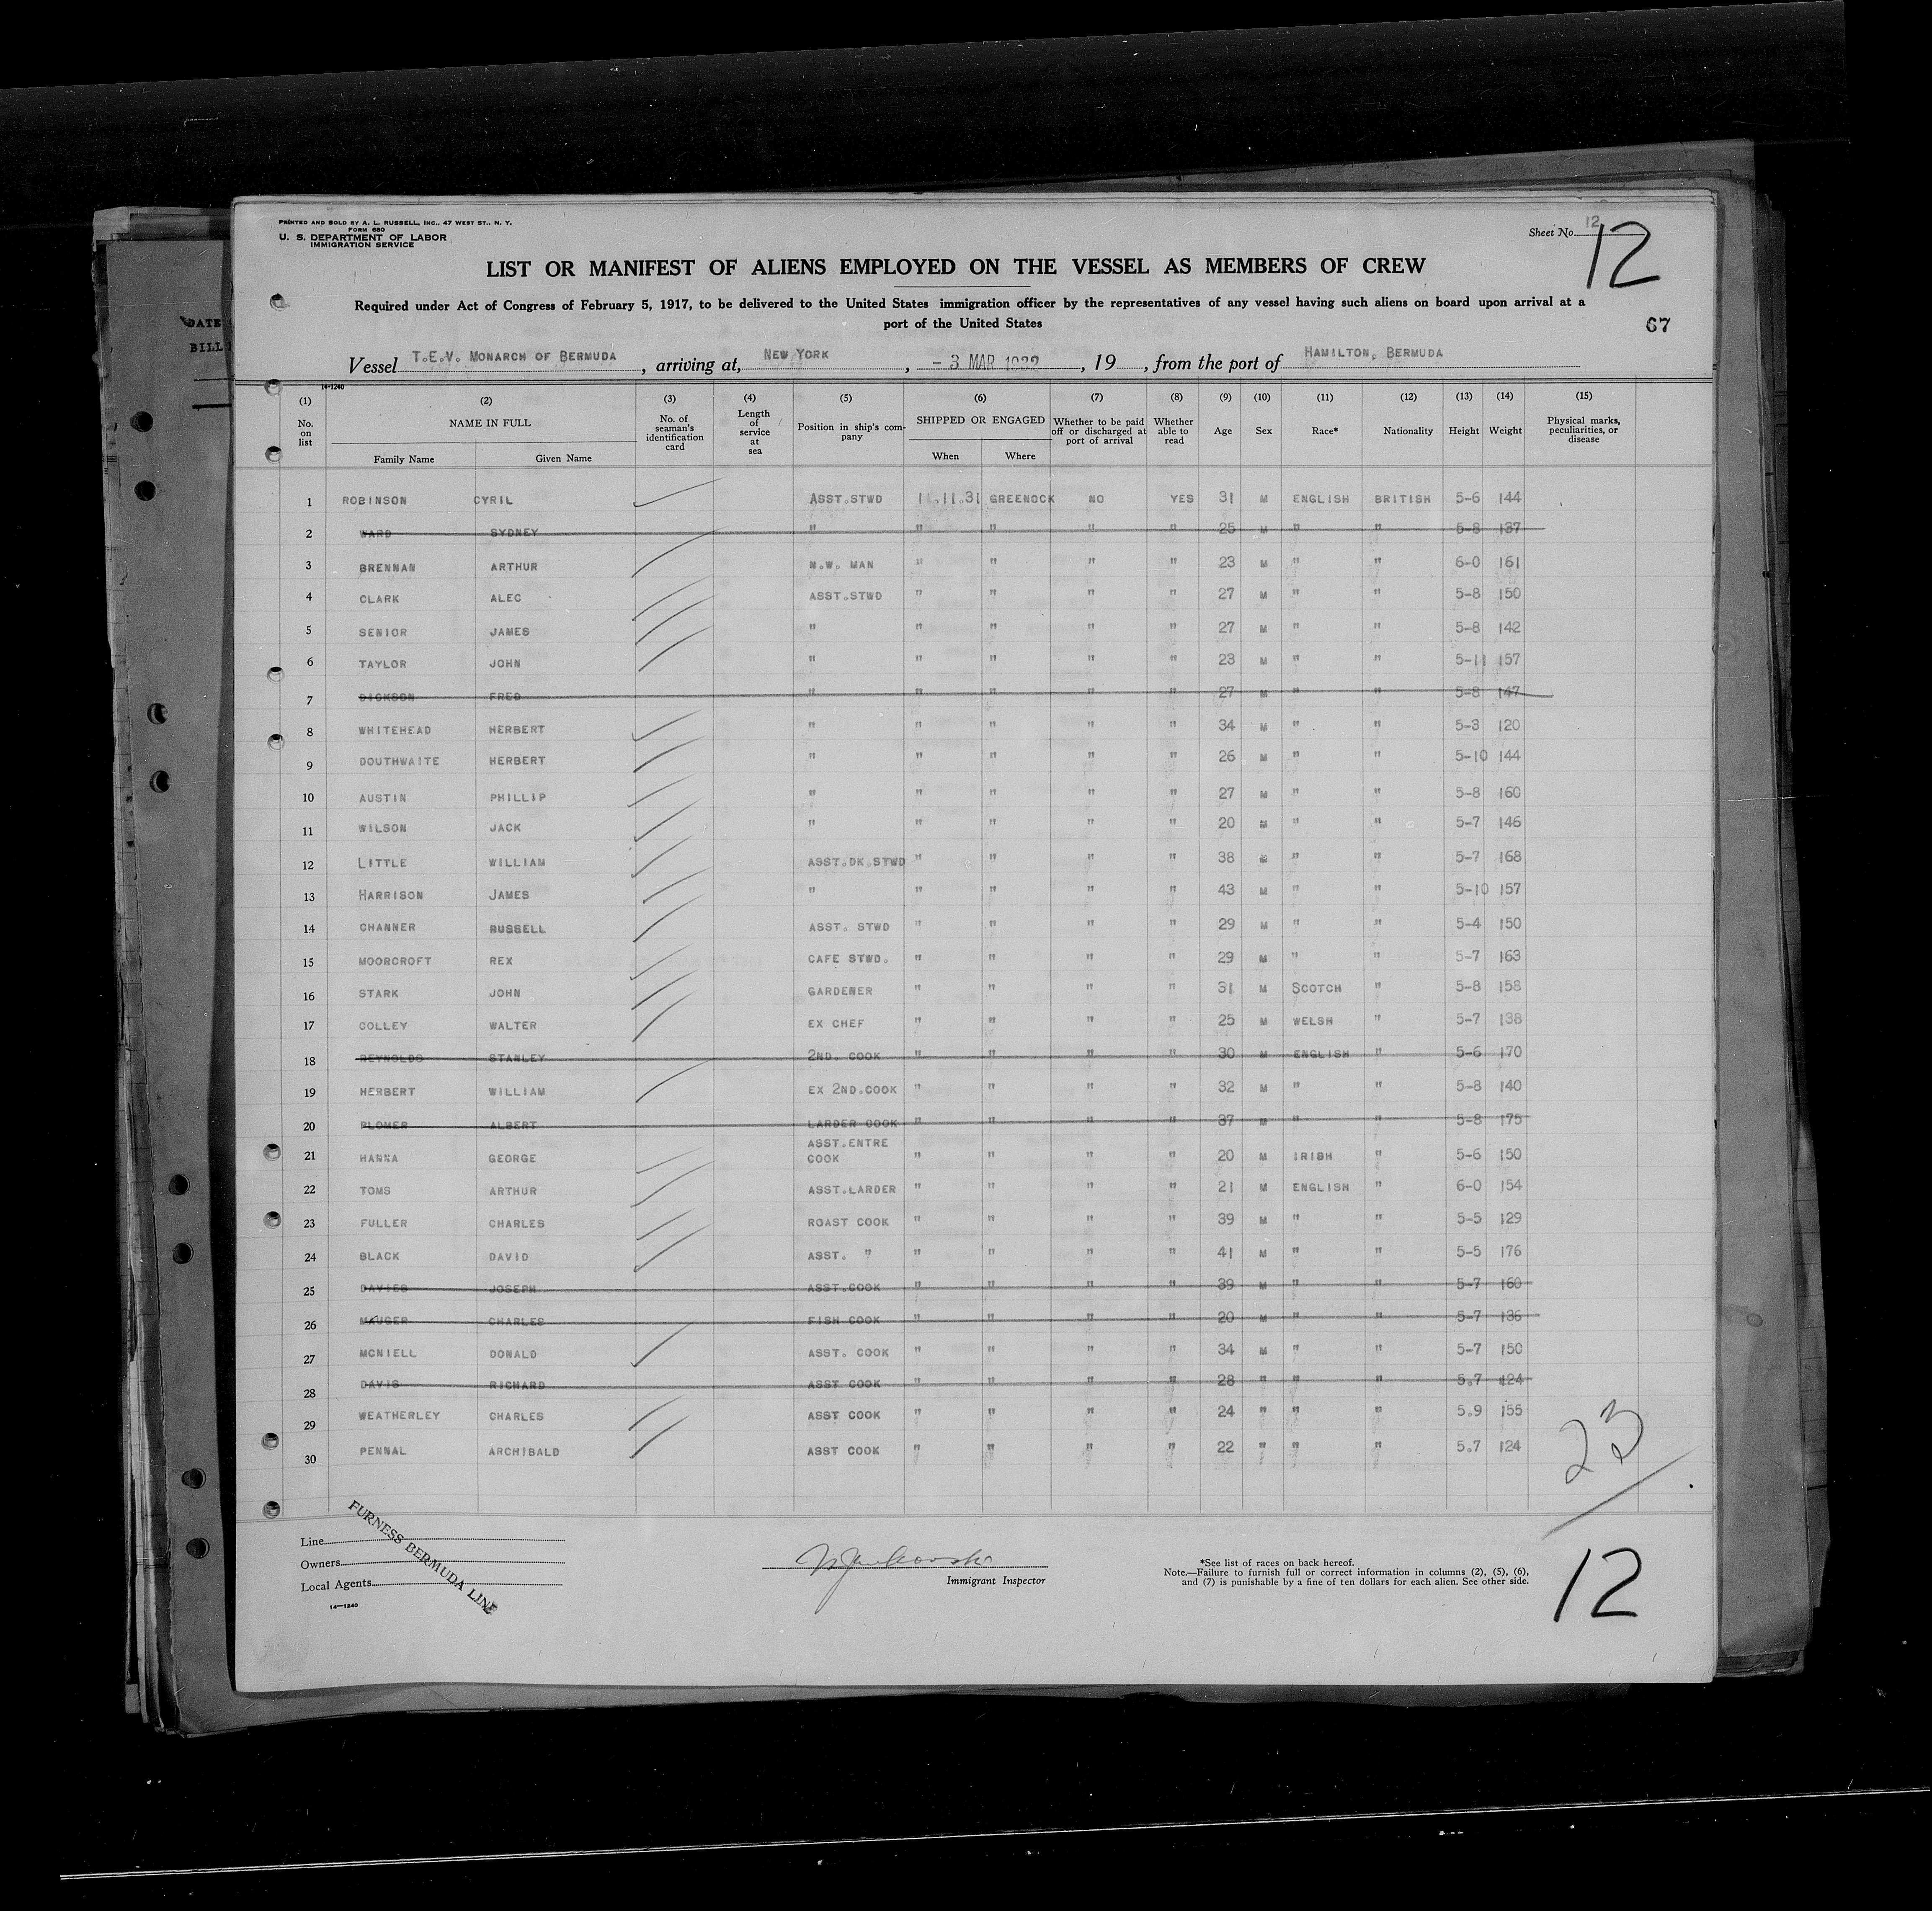 PRINTED AND SOLD BY A. L. RUSSELL, INC., 47 WEST ST., N. Y.
FORM 680
U. S. DEPARTMENT OF LABOR
IMMIGRATION SERVICE
Sheet No. 12
12
LIST OR MANIFEST OF ALIENS EMPLOYED ON THE VESSEL AS MEMBERS OF CREW
Required under Act of Congress of February 5, 1917, to be delivered to the United States immigration officer by the representatives of any vessel having such aliens on board upon arrival at a
port of the United States
67
DATE
BILL
Vessel T.E.V. MONARCH OF BERMUDA, arriving at, NEW YORK, - 3 MAR 1932, 19, from the port of HAMILTON, BERMUDA
14-1240
(1) (2) (3) (4) (5) (6) (7) (8) (9) (10) (11) (12) (13) (14) (15)
No. on list NAME IN FULL Family Name Given Name No. of seaman's identification card Length of service at sea Position in ship's company SHIPPED OR ENGAGED When Where Whether to be paid off or discharged at port of arrival Whether able to read Age Sex Race* Nationality Height Weight Physical marks, peculiarities, or disease
1 ROBINSON CYRIL ASST.STWD .11.31 GREENOCK NO YES 31 M ENGLISH BRITISH 5-6 144
2 WARD SYDNEY " " " " " 25 M " " 5-8 137
3 BRENNAN ARTHUR N.W. MAN " " " " 23 M " " 6-0 161
4 CLARK ALEC ASST.STWD " " " " 27 M " " 5-8 150
5 SENIOR JAMES " " " " " 27 M " " 5-8 142
6 TAYLOR JOHN " " " " " 23 M " " 5-11 157
7 DICKSON FRED " " " " " 27 M " " 5-8 147
8 WHITEHEAD HERBERT " " " " " 34 M " " 5-3 120
9 DOUTHWAITE HERBERT " " " " " 26 M " " 5-10 144
10 AUSTIN PHILLIP " " " " " 27 M " " 5-8 160
11 WILSON JACK " " " " " 20 M " " 5-7 146
12 LITTLE WILLIAM ASST.DK.STWD " " " " 38 M " " 5-7 168
13 HARRISON JAMES " " " " " 43 M " " 5-10 157
14 CHANNER RUSSELL ASST. STWD " " " " 29 M " " 5-4 150
15 MOORCROFT REX CAFE STWD. " " " " 29 M " " 5-7 163
16 STARK JOHN GARDENER " " " " 31 M SCOTCH " 5-8 158
17 COLLEY WALTER EX CHEF " " " " 25 M WELSH " 5-7 138
18 REYNOLDS STANLEY 2ND. COOK " " " " 30 M ENGLISH " 5-6 170
19 HERBERT WILLIAM EX 2ND.COOK " " " " 32 M " " 5-8 140
20 PLOMER ALBERT LARDER COOK " " " " 37 M " " 5-8 175
21 HANNA GEORGE ASST.ENTRE COOK " " " " 20 M IRISH " 5-6 150
22 TOMS ARTHUR ASST.LARDER " " " " 21 M ENGLISH " 6-0 154
23 FULLER CHARLES ROAST COOK " " " " 39 M " " 5-5 129
24 BLACK DAVID ASST. " " " " " 41 M " " 5-5 176
25 DAVIES JOSEPH ASST.COOK " " " " 39 M " " 5-7 160
26 MAUGER CHARLES FISH COOK " " " " 20 M " " 5-7 136
27 MCNIELL DONALD ASST. COOK " " " " 34 M " " 5-7 150
28 DAVIS RICHARD ASST COOK " " " " 28 " " " 5.7 124
29 WEATHERLEY CHARLES ASST COOK " " " " 24 " " " 5.9 155
30 PENNAL ARCHIBALD ASST COOK " " " " 22 " " " 5.7 124
23
Line
Owners
Local Agents
FURNESS BERMUDA LINE
14-1240
Immigrant Inspector
*See list of races on back hereof.
Note.—Failure to furnish full or correct information in columns (2), (5), (6),
and (7) is punishable by a fine of ten dollars for each alien. See other side.
12